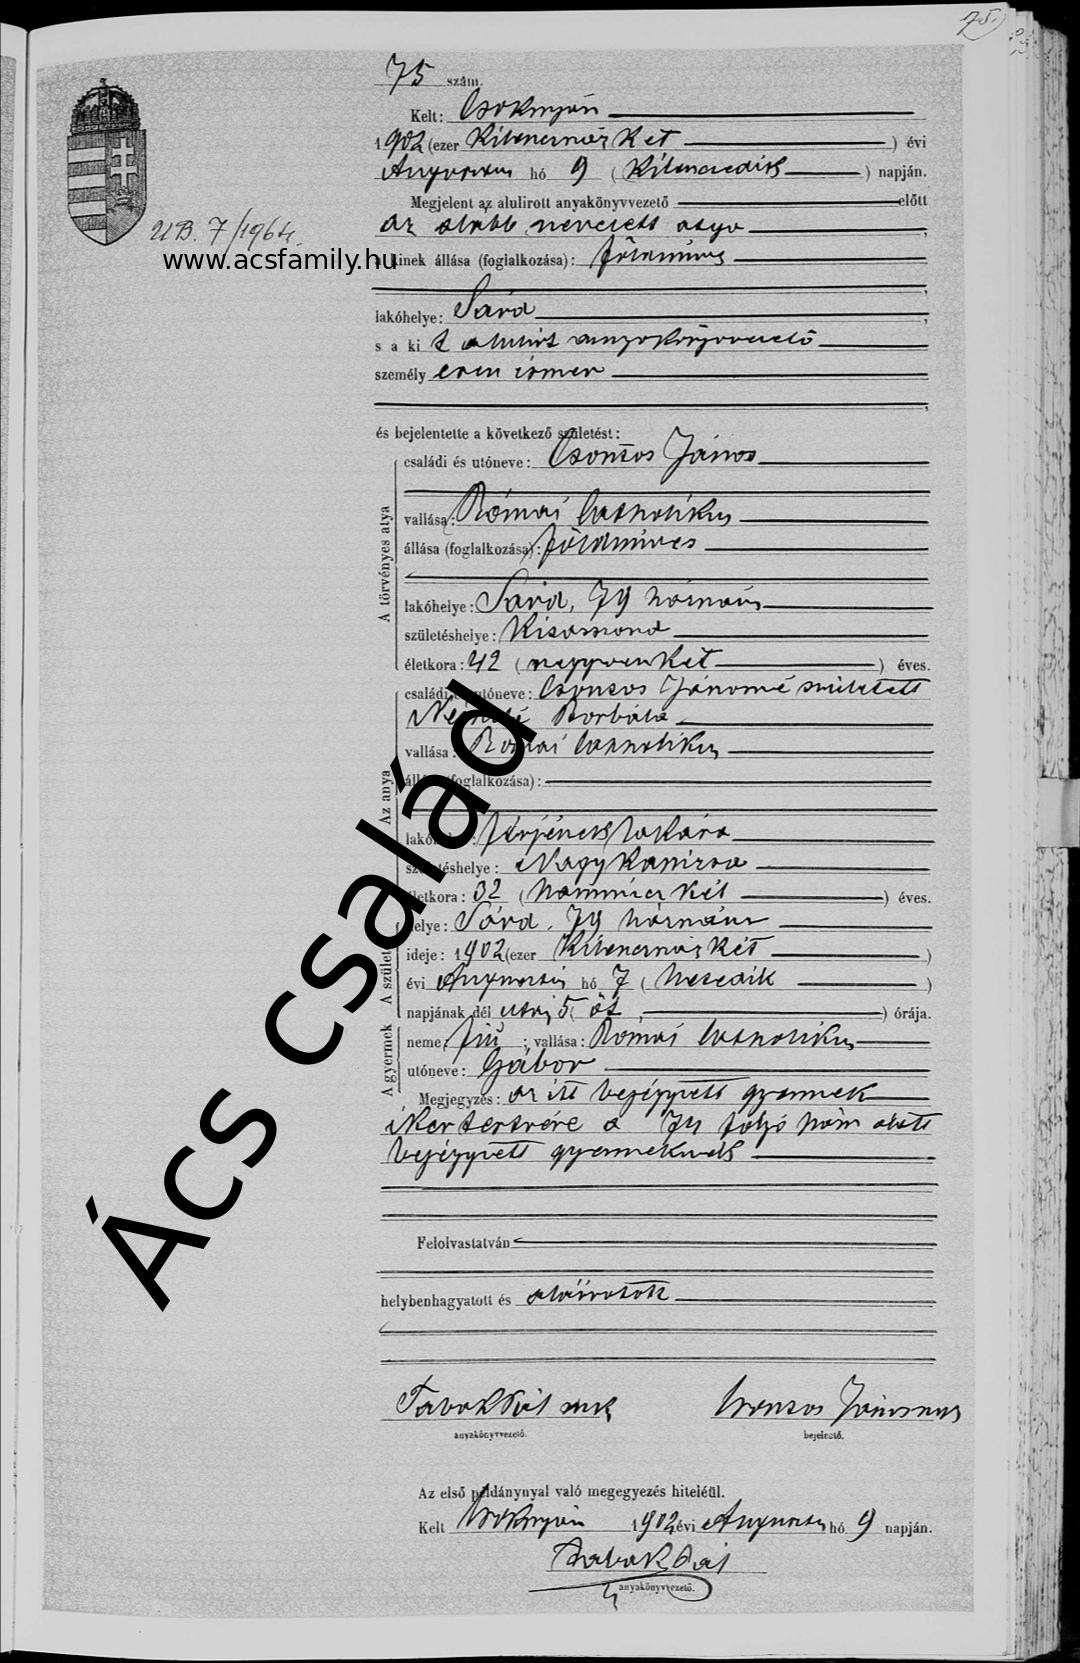 75
75 szám.
Kelt: Csokonyán
1902 (ezer kilencszáz két ) évi
Augusztus hó 9 ( kilencedik ) napján.
Megjelent az alulirott anyakönyvvezető előtt
az alább nevezett atya ,
a kinek állása (foglalkozása): földmüves
U.B. 7/1964.
www.acsfamily.hu
lakóhelye: Sárd ,
s a ki t alulirt anyakönyvvezető
személy esen ismer
és bejelentette a következő születést:
A törvényes atya
családi és utóneve: Csonzos János
vallása: Római catholikus
állása (foglalkozása): földmüves
lakóhelye: Sárd, 79 házszám
születéshelye: Kisasszond
életkora: 42 ( negyvenkét ) éves.
Az anya
családi és utóneve: Csonzos Jánosné született
Németé Borbála
vallása: Római catholikus
állása (foglalkozása):
lakóhelye: férjének lakása
születéshelye: Nagykanizsa
életkora: 32 ( harminczkét ) éves.
A születés
helye: Sárd, 79 házszám
ideje: 1902 (ezer kilencszáz két )
évi Augusztus hó 7 ( hetedik )
napjának dél utáni 5, öt órája.
A gyermek
neme: fiú ; vallása: Romai catholikus
utóneve: Gábor
Megjegyzés: az itt bejegyzett gyermek
ikertestvére a 74 folyó szám alatt
bejegyzett gyermeknek
Felolvastatván
helybenhagyatott és aláiratott
Tabak Pál mk Csonzos János mk
anyakönyvvezető. bejelentő.
Az első példánynyal való megegyezés hiteléül.
Kelt Csokonyán 1902 évi Augusztus hó 9 napján.
Tabak Pál
anyakönyvvezető.
Ács család